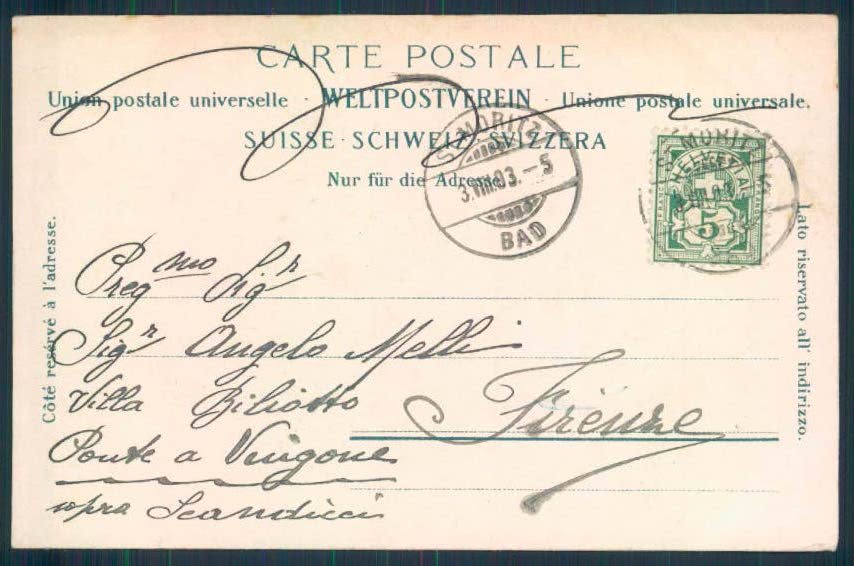 CARTE POSTALE
Union postale universelle · WELTPOSTVEREIN · Unione postale universale.
SUISSE · SCHWEIZ · SVIZZERA
Nur für die Adresse.
ST. MORITZ
3.VIII.03. - 5
BAD
HELVETIA
5
Côté reservé à l'adresse.
Lato riservato all' indirizzo.
Preg.mo Sigr
Sigr Angelo Melli
Villa Biliotto
Firenze
Ponte a Vingone
sopra Scandicci